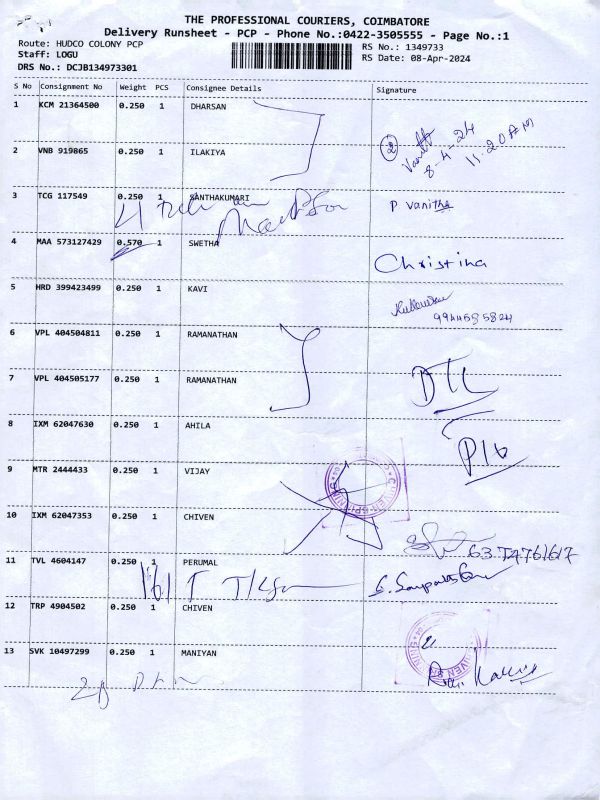 THE PROFESSIONAL COURIERS, COIMBATORE
Delivery Runsheet - PCP - Phone No.:0422-3505555 - Page No.:1
Route: HUDCO COLONY PCP
Staff: LOGU
DRS No.: DCJB134973301
RS No.: 1349733
RS Date: 08-Apr-2024
S No Consignment No Weight PCS Consignee Details Signature
1 KCM 21364500 0.250 1 DHARSAN
2 Vanitha 8-4-24 11-20AM
2 VNB 919865 0.250 1 ILAKIYA
3 TCG 117549 0.250 1 SANTHAKUMARI P Vanitha
4 MAA 573127429 0.570 1 SWETHA Christina
5 HRD 399423499 0.250 1 KAVI
9944555824
6 VPL 404504811 0.250 1 RAMANATHAN
7 VPL 404505177 0.250 1 RAMANATHAN
8 IXM 62047630 0.250 1 AHILA
9 MTR 2444433 0.250 1 VIJAY
10 IXM 62047353 0.250 1 CHIVEN
11 TVL 4604147 0.250 1 PERUMAL
12 TRP 4904502 0.250 1 CHIVEN
13 SVK 10497299 0.250 1 MANIYAN